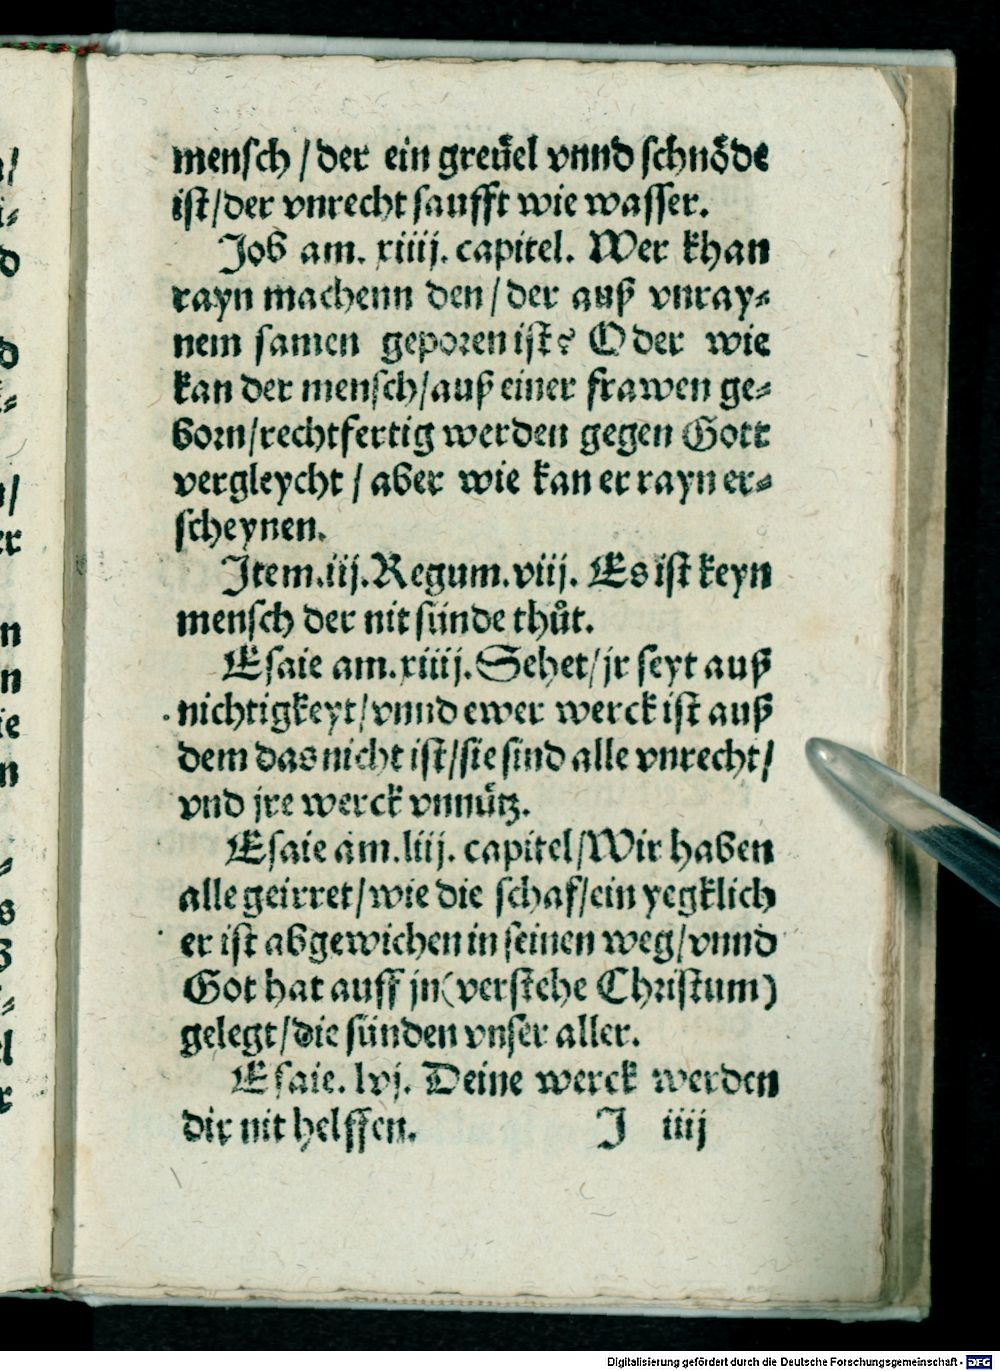 mensch / der ein greüel vnnd schnöde
ist/der vnrecht saufft wie wasser.
Job am. xiiij. capitel. Wer khan
rayn machenn den / der auß vnray⸗
nem samen geporen ist? Oder wie
kan der mensch/auß einer frawen ge⸗
born/rechtfertig werden gegen Gott
vergleycht / aber wie kan er rayn er⸗
scheynen.
Item.iij.Regum.viij. Es ist keyn
mensch der nit sünde thůt.
Esaie am.xiiij.Sehet/jr seyt auß
nichtigkeyt/vnnd ewer werck ist auß
dem das nicht ist/sie sind alle vnrecht/
vnd jre werck vnnütz.
Esaie am.liij. capitel/Wir haben
alle geirret/wie die schaf/ein yegklich
er ist abgewichen in seinen weg/vnnd
Got hat auff jn(verstehe Christum)
gelegt/die sünden vnser aller.
Esaie. lvj. Deine werck werden
dir nit helffen. J iiij
Digitalisierung gefördert durch die Deutsche Forschungsgemeinschaft - DFG